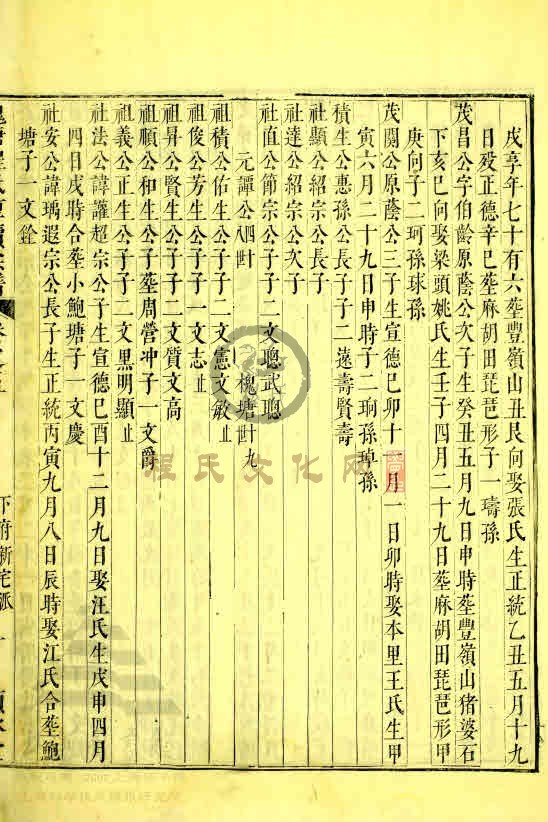 戌享年七十有六塟豐嶺山丑艮向娶張氏生正統乙丑五月十九
日歿正德辛巳塟麻胡田琵琶形子一璹孫
茂昌公字伯齡原蔭公次子生癸丑五月九日申時塟豐嶺山猪婆石
下亥巳向娶梁頭姚氏生壬子四月二十九日塟麻胡田琵琶形甲
庚向子二珂孫球孫
茂閣公原蔭公三子生宣德巳卯十一月一日卯時娶本里王氏生甲
寅六月二十九日申時子二珦孫琸孫
積生公惠孫公長子子二遠壽賢壽
社顯公紹宗公長子
社達公紹宗公次子
社直公節宗公子子二文聰武聰
元譚公四世 槐塘世九
祖積公佑生公子子二文憲文敏止
祖俊公芳生公子子一文志止
祖昇公賢生公子子二文質文高
祖順公和生公子塟周營冲子一文爵
祖義公正生公子子二文黑明顯止
社法公諱讙超宗公子生宣德巳酉十二月九日娶汪氏生戊申四月
四日戌時合塟小鮑塘子一文慶
社安公諱瑀遐宗公長子生正統丙寅九月八日辰時娶江氏合塟鮑
塘子一文銓
下府新宅派
程氏文化网